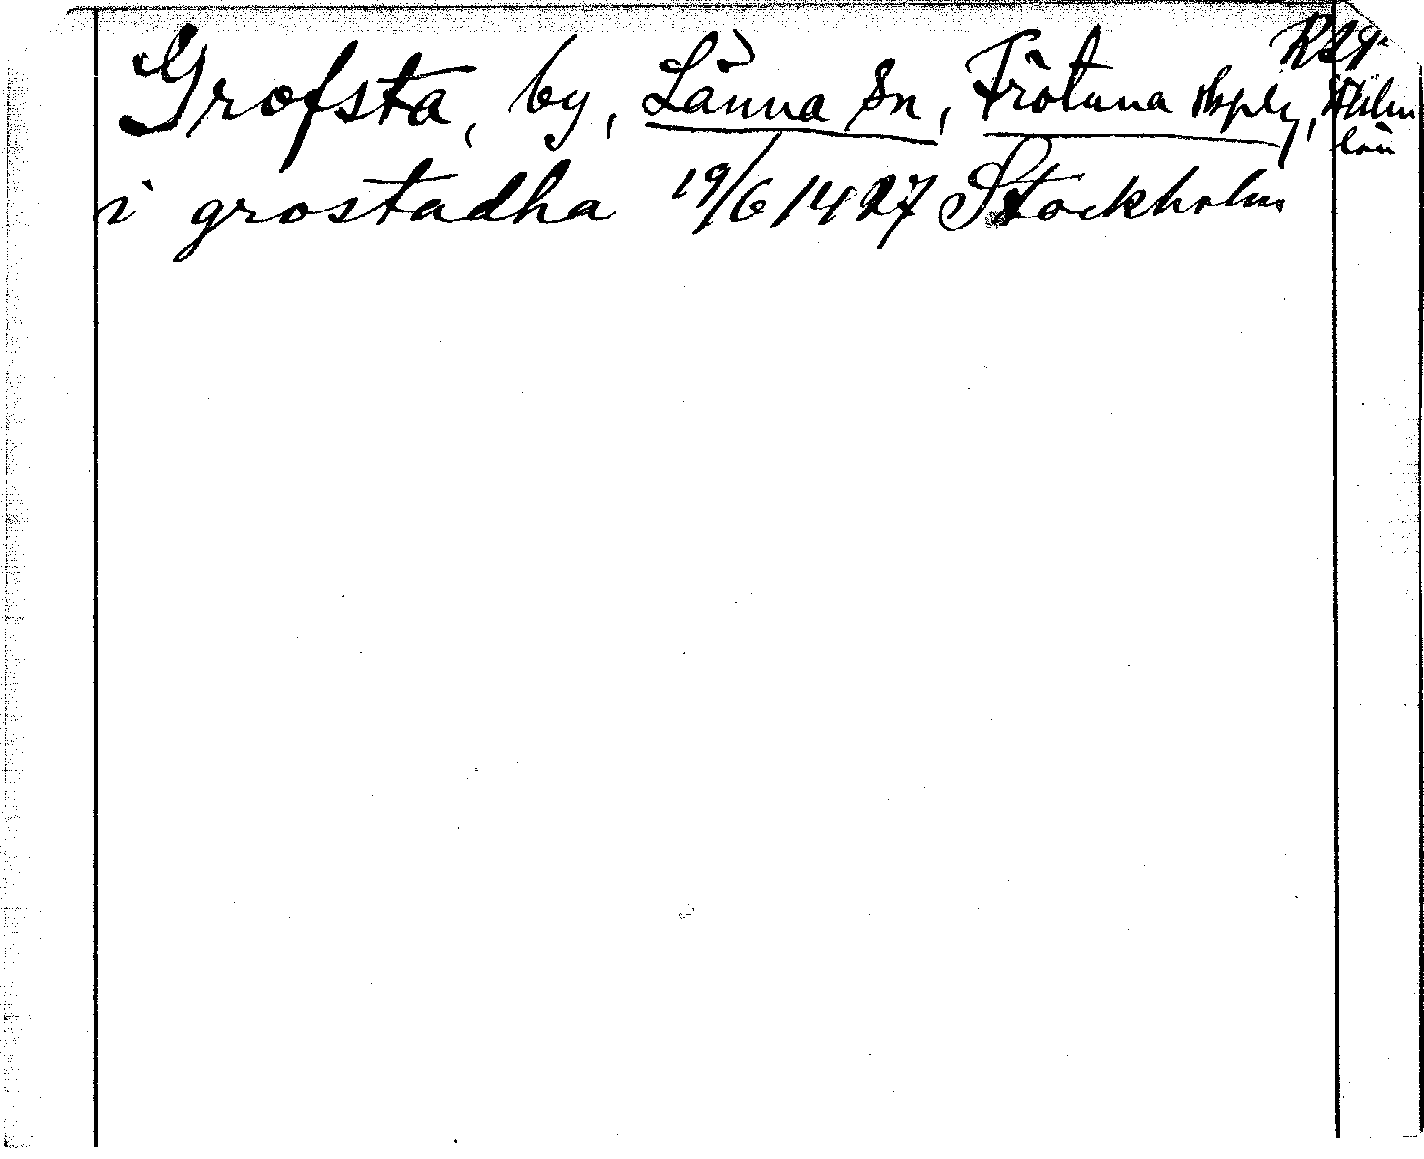 Grofsta, by, Länna sn, Frötuna skplg, Sthlm
län
i grostadha 19/6 1427 Stockholm